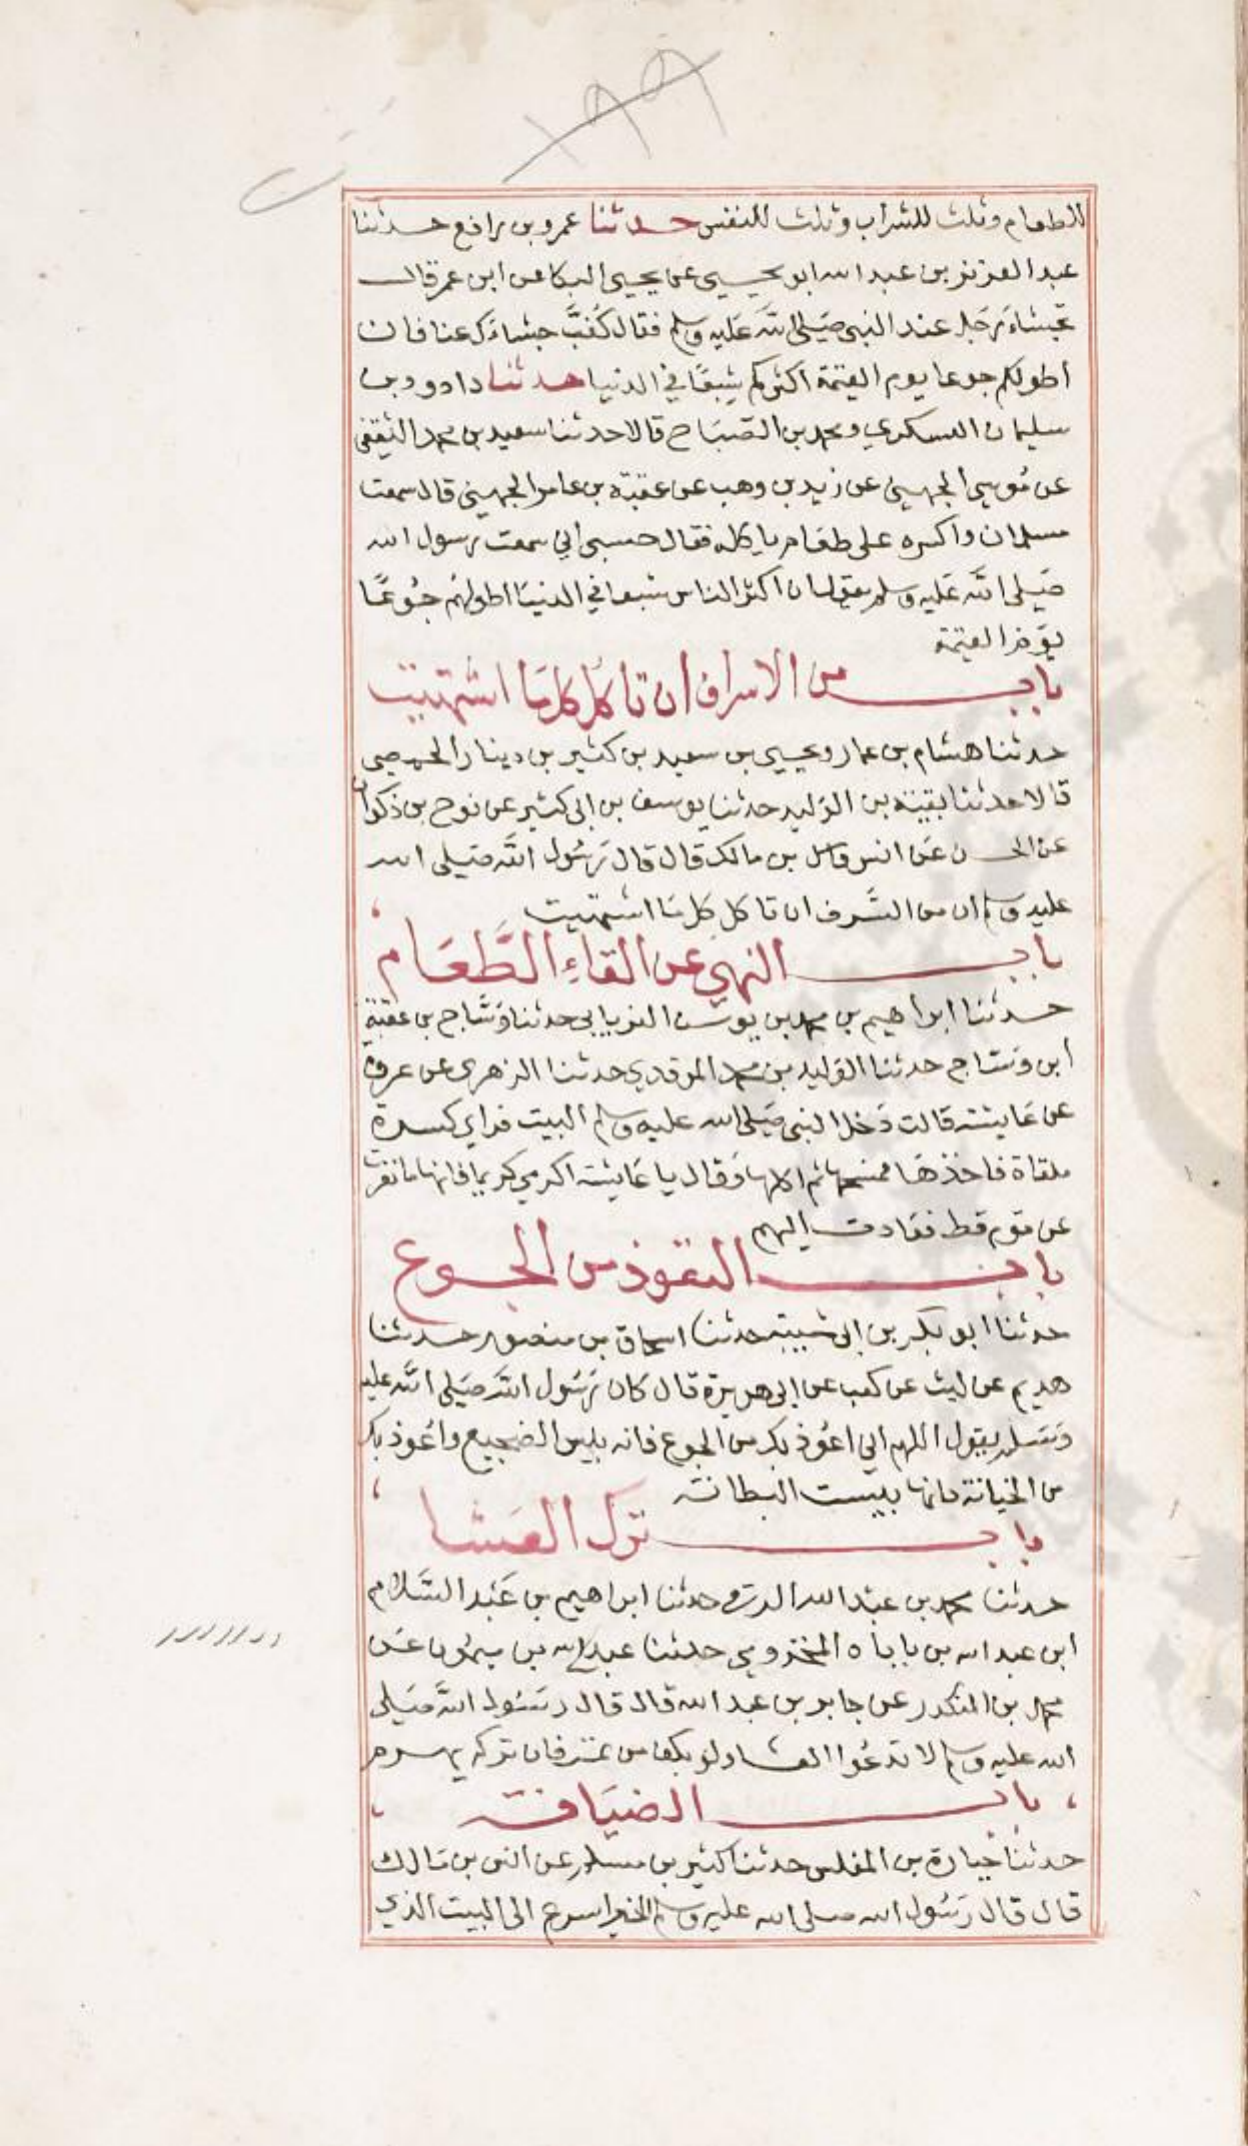 ١٨٩
للطعام وثلث للشراب وثلث للنفس حدثنا عمرو بن رافع حدثنا
عبد العزيز بن عبد الله ابو يحيى عن يحيى البكا عن ابن عمر قال
تجشاء رجل عند النبي صَلى اللّه عَليه وسلم فقال كُفَّ جشاءَك عنا فان
اطولكم جوعا يوم القيمة اكثركم شبعًا في الدنيا حدثنا داوود بن
سليمان العسكري ومحمد بن الصَّبَاح قالا حدثنا سعيد بن محمد الثقفي
عن مُوسى الجهني عن زيد بن وهب عن عقبة بن عامر الجهني قال سمعت
سلمان واكره على طعَام ياكله فقال حسبي اني سمعت رسول الله
صَلى اللّه عَليه وسلم يقول ان اكثر الناس شبعا في الدنيَا اطولهُم جُوعًا
يوَم القيمة
باب من الاسراف ان تاكُل كل مَا اشتهيت
حدثنا هشام بن عمار ويحيى بن سعيد بن كثير بن دينار الحمصي
قالا حدثنا بقية بن الوَليد حدثنا يوسف بن ابي كثير عن نوح بن ذكوان
عن الحسن عَن انس بن مالك قال قال رَسُول اللّه صَلى الله
عليه وسلم ان من السَّرف ان تاكل كل مَا اشتهيت
باب النهي عن القاءِ الطَّعَام
حدثنا ابراهيم بن محمد بن يوسف الفريابي حدثنا وسَّاج بن عقبة
ابن وسَّاج حدثنا الوَليد بن محمد الموقدي حدثنا الزهرى عن عروة
عن عَايشة قالت دَخل النبي صَلى الله عليه وسلم البيت فراي كسرة
ملقاة فاخذهَا فمسحها ثم اكلها وَقال يا عَايشة اكرمي كريما فانها ما نفرت
عن قوم قط فعَادت اليهم
باب التعَوذ من الجوع
حدثنا ابو بكر بن ابي شيبة حدثنا اسحاق بن منصور حدثنا
هريم عن ليث عن كعب عن ابي هريرة قال كان رَسُول اللّه صَلى اللّه عليه
وَسَلم يقول اللهم اني اعُوذ بك من الجوع فانه بيس الضجيع واعُوذ بك
من الخيانة فانها بيست البطانة
باب ترك العَشا
حدثنا محمد بن عبْد الله الرقي حدثنا ابراهيم بن عَبْد السَّلام
ابن عبد الله بن باباه المخزومي حدثنا عبد الله بن ميمُون عَن
محمد بن المنكدر عن جابر بن عبد الله قال قال رسَُول اللّه صَلى
الله عليه وسلم لا تدعُوا العشا ولو بكف من تمر فان تركه يهرم
باب الضيَافة
حدثنا جبارة بن المغلس حدثنا كثير بن مسلم عن انس بن مَالك
قال قال رَسُول الله صلى الله عليه وسلم الخير اسرع الى البيت الذي